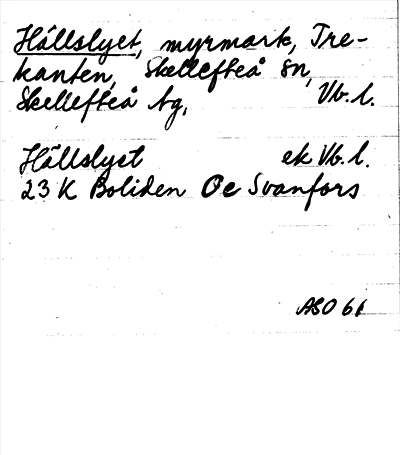 Hällslyet, myrmark, Tre-
kanten, Skellefteå sn,
Skellefteå tg, Vb. l.
Hällslyet ek Vb. l.
23 K Boliden Oc Svanfors
ASO 61